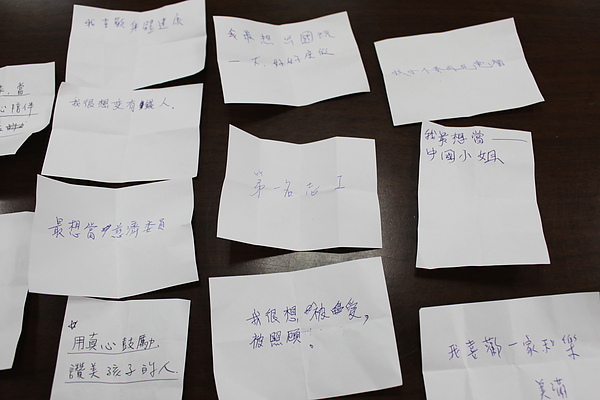 我喜歡
我最想出國玩
一天 好好度假
當
心陪伴
我很想變有錢人.
我最想當——
中國小姐
第一名志工
最想當慈濟委員
用真心鼓勵.
讚美孩子的人.
我很想被愛,
被照顧。
我喜歡一家和樂
美滿